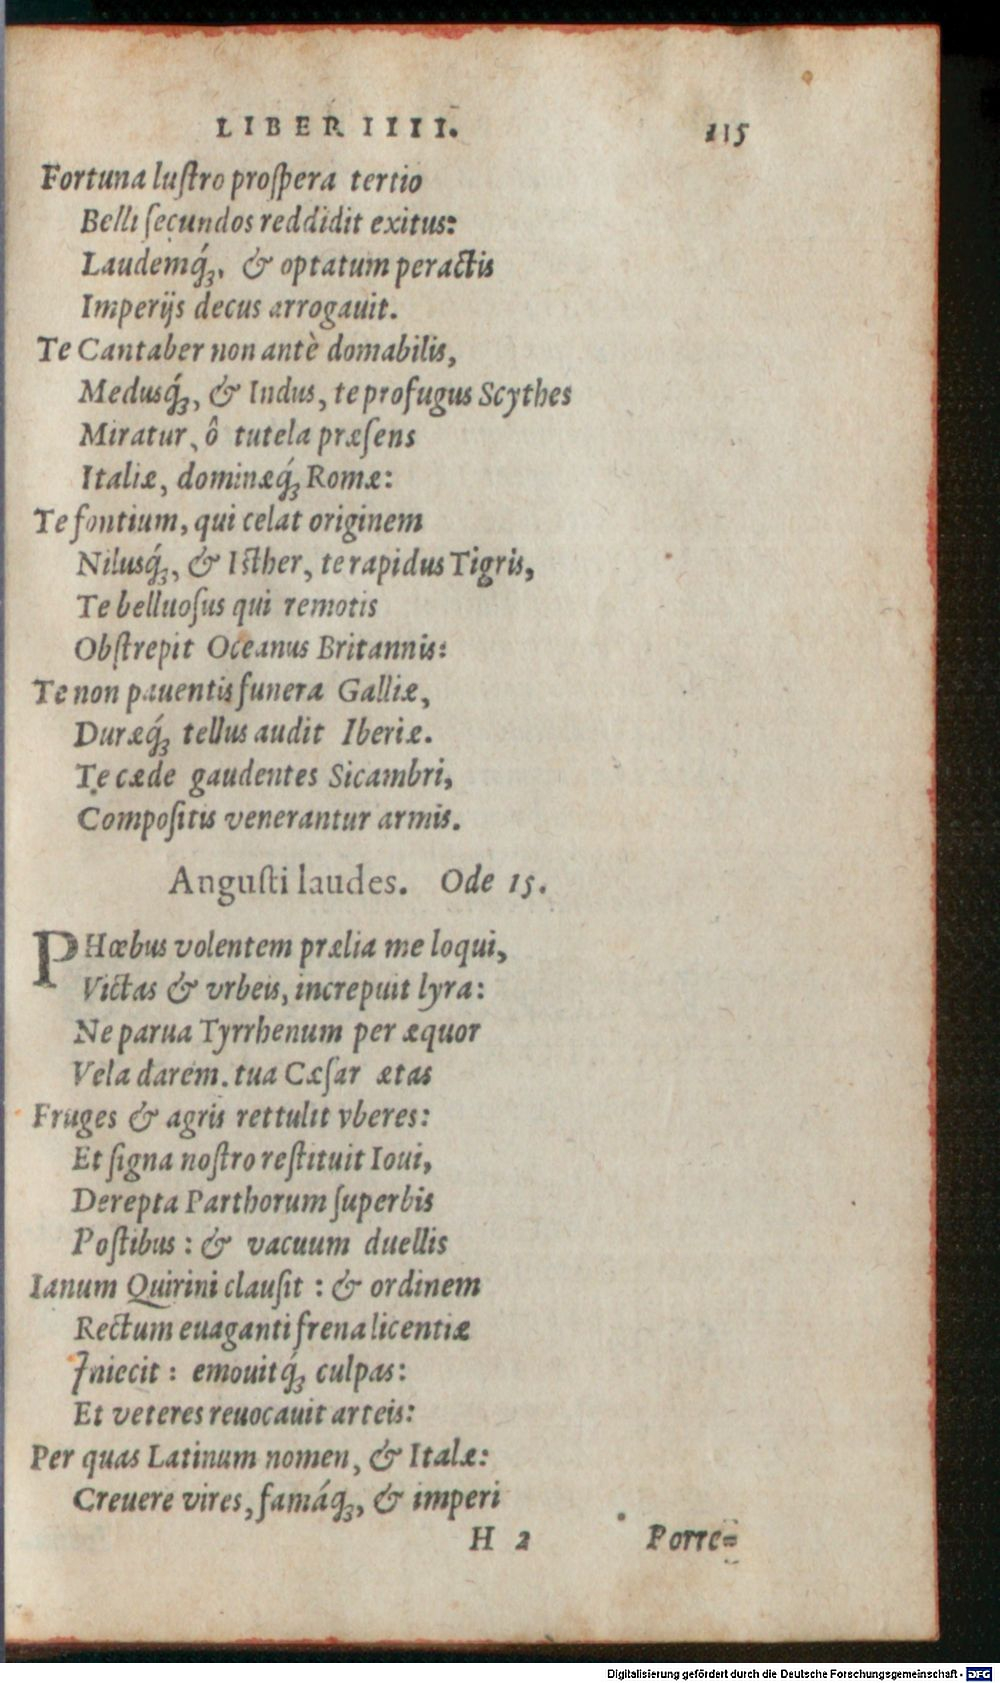 LIBER IIII. 115
Fortuna luſtro proſpera tertio
Belli ſecundos reddidit exitus:
Laudemq́;, & optatum peractis
Imperijs decus arrogauit.
Te Cantaber non antè domabilis,
Medusq́;, & Indus, te profugus Scythes
Miratur, ô tutela præſens
Italiæ, dominæq́; Romæ:
Te fontium, qui celat originem
Nilusq́;, & Iſther, te rapidus Tigris,
Te belluoſus qui remotis
Obſtrepit Oceanus Britannis:
Te non pauentis funera Galliæ,
Duræq́; tellus audit Iberiæ.
Te cæde gaudentes Sicambri,
Compoſitis venerantur armis.
Anguſti laudes. Ode 15.
PHœbus volentem prælia me loqui,
Victas & vrbeis, increpuit lyra:
Ne parua Tyrrhenum per æquor
Vela darem. tua Cæſar ætas
Fruges & agris rettulit vberes:
Et ſigna noſtro reſtituit Ioui,
Derepta Parthorum ſuperbis
Poſtibus: & vacuum duellis
Ianum Quirini clauſit: & ordinem
Rectum euaganti frena licentiæ
Iniecit: emouitq́; culpas:
Et veteres reuocauit arteis:
Per quas Latinum nomen, & Italæ:
Creuere vires, famáq́;, & imperi
H 2 Porre=
Digitalisierung gefördert durch die Deutsche Forschungsgemeinschaft - DFG